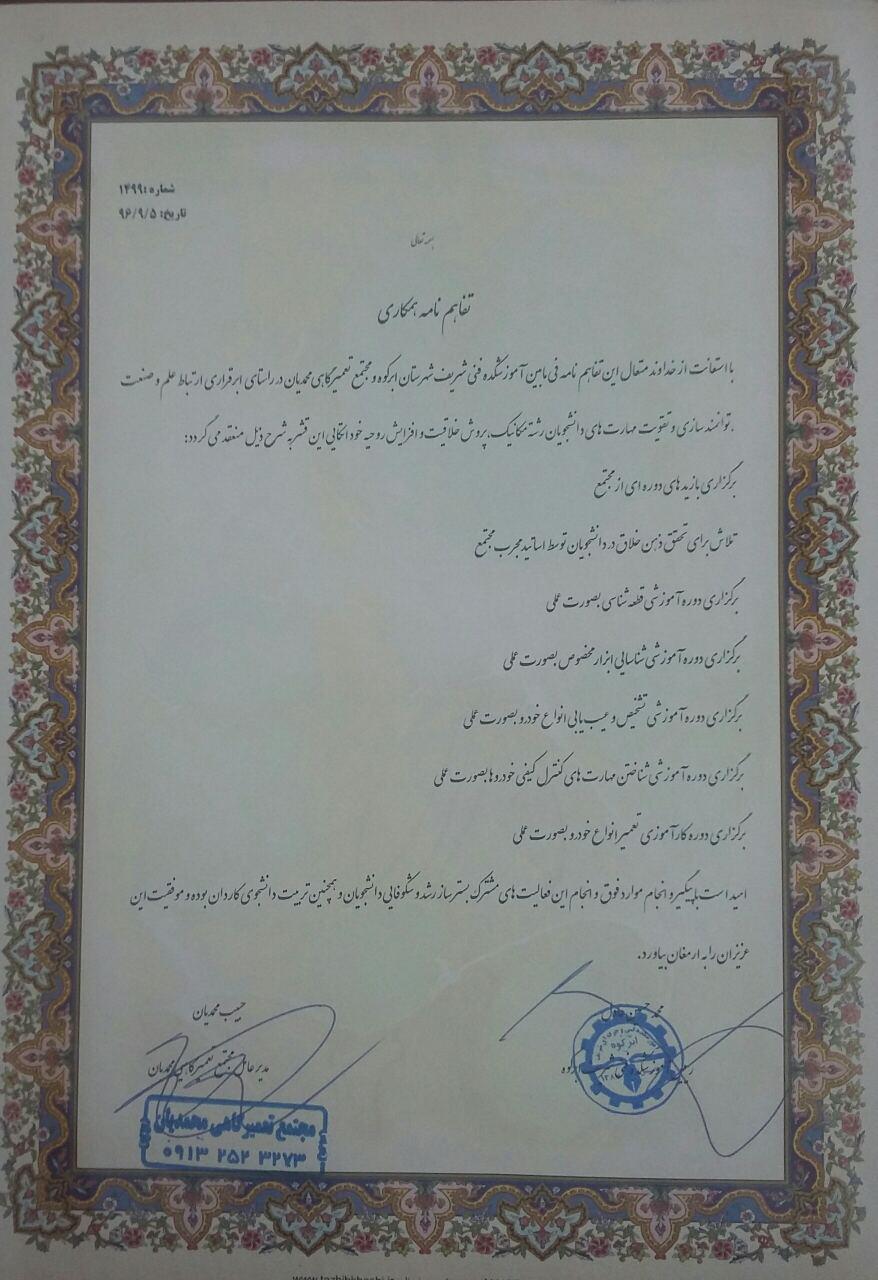 شماره :۱۴۹۹
تاریخ: ۹۶/۹/۵
بسمه تعالی
تفاهم نامه همکاری
با استعانت از خداوند متعال این تفاهم نامه فی مابین آموزشکده فنی شریف شهرستان ابرکوه و مجتمع تعمیرگاهی محمدیان در راستای ابرقراری ارتباط علم و صنعت
،توانمند سازی و تقویت مهارت های دانشجویان رشته مکانیک،پروش خلاقیت و افزایش روحیه خود اتکایی این قشربه شرح ذیل منعقد می گردد:
برگزاری بازید های دوره ای از مجتمع
تلاش برای تحقق ذهن خلاق در دانشجویان توسط اساتید مجرب مجتمع
برگزاری دوره آموزشی قطعه شناسی بصورت عملی
برگزاری دوره آموزشی شناسایی ابزار مخصوص بصورت عملی
برگزاری دوره آموزشی تشخیص و عیب یابی انواع خودرو بصورت عملی
برگزاری دوره آموزشی شناختن مهارت های کنترل کیفی خودروها بصورت عملی
برگزاری دوره کارآموزی تعمیر انواع خودرو بصورت عملی
امید است با پیگیر و انجام موارد فوق و انجام این فعالیت های مشترک بستر ساز رشد و شکوفایی دانشجویان و همچنین تربیت دانشجوی کاردان بوده و موفقیت این
عزیزان را به ارمغان بیاورد.
محمد حسن
حبیب محمدیان
رییس آموزشکده فنی شریف ابرکوه
مدیر عامل مجتمع تعمیرگاهی محمدیان
ابرکوه
مجتمع تعمیرگاهی محمدیان
۰۹۱۳ ۲۵۲ ۳۲۷۳